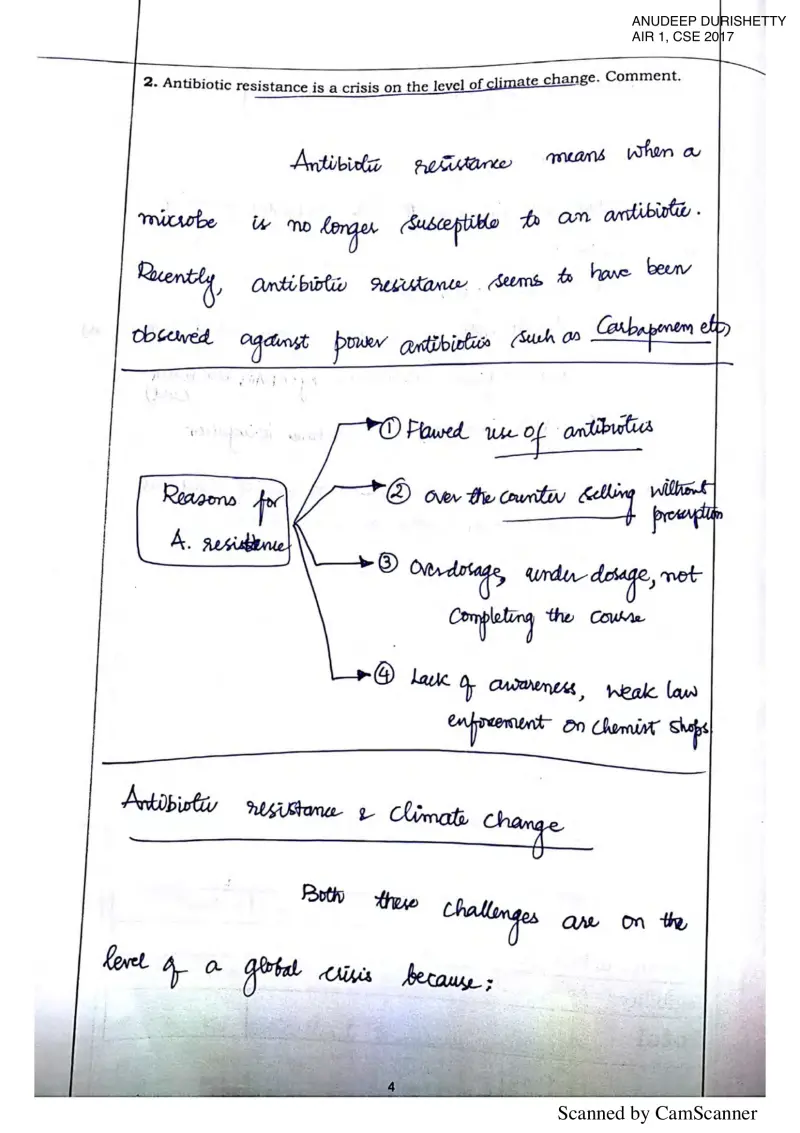 ANUDEEP DURISHETTY
AIR 1, CSE 2017
2. Antibiotic resistance is a crisis on the level of climate change. Comment.
Antibiotic resistance means when a
microbe is no longer susceptible to an antibiotic.
Recently, antibiotic resistance seems to have been
observed against power antibiotics such as Carbapenem etc,
Reasons for
A. resistence
① Flawed use of antibiotics
② over the counter selling without
prescription
③ Overdosage, under dosage, not
completing the course
④ Lack of awareness, weak law
enforcement on chemist shops
Antibiotic resistance & climate change
Both these challenges are on the
level of a global crisis because:
4
Scanned by CamScanner